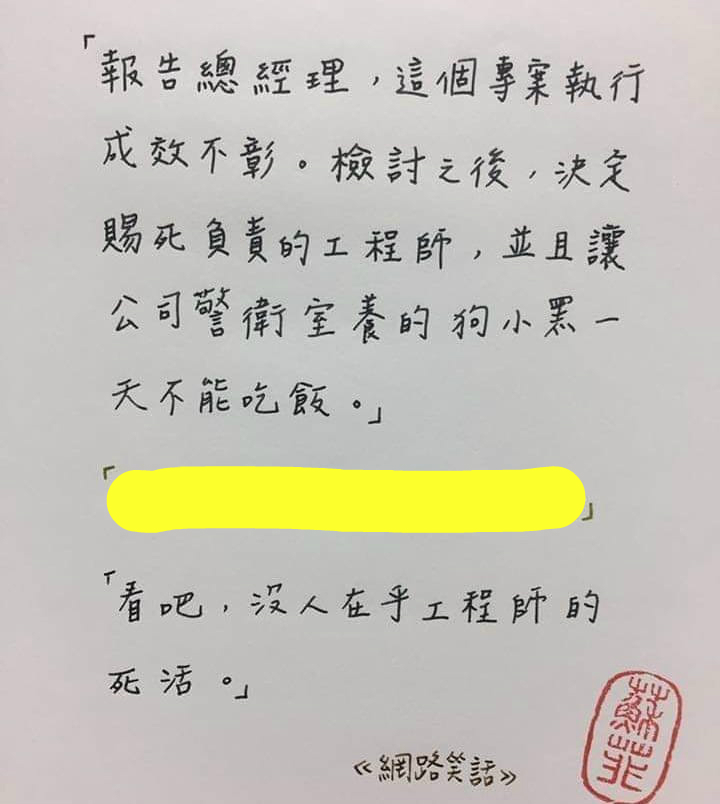 「報告總經理，這個專案執行
成效不彰。檢討之後，決定
賜死負責的工程師，並且讓
公司警衛室養的狗小黑一
天不能吃飯。」
「」
「看吧，沒人在乎工程師的
死活。」
《網路笑話》
蘇菲